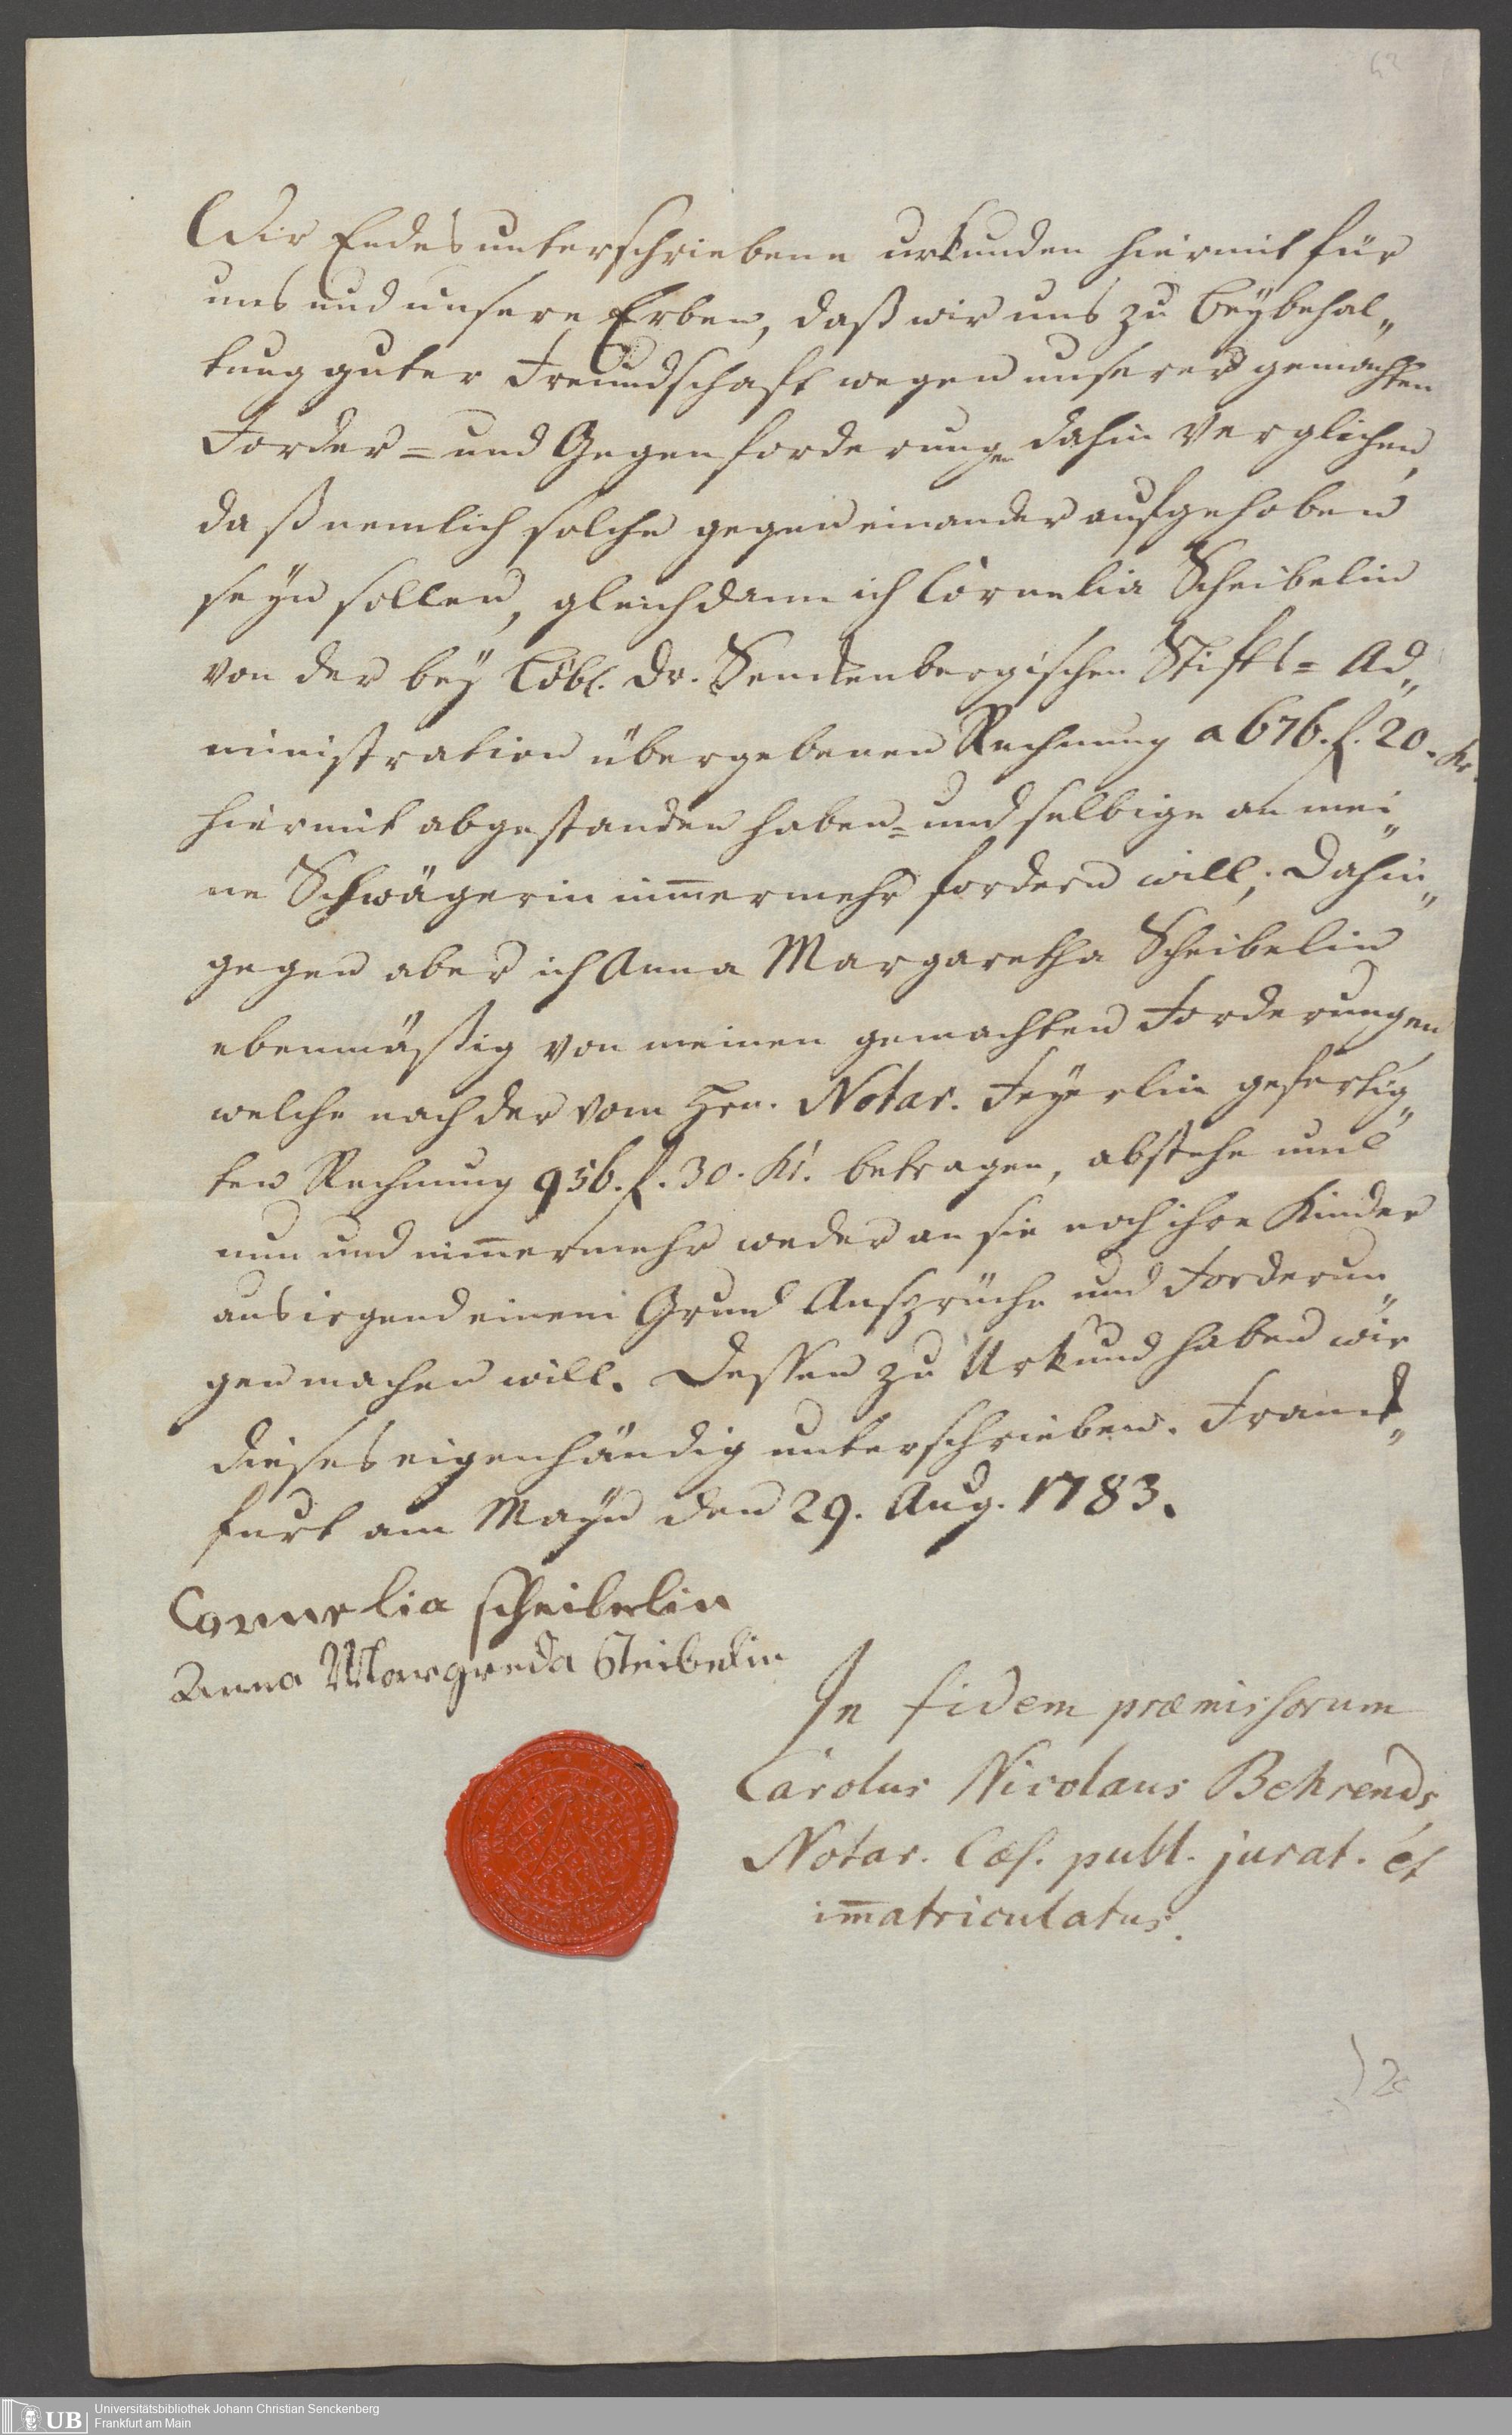 62
Wir Endesunterschriebene urkunden hiermit für
uns und unsere Erben, daß wir uns zu Beybehal„
tung guter Freundschaft wegen unserer gemachten
Forder= und Gegenforderungen dahin verglichen,
daß nemlich solche gegeneinander aufgehoben
seyn sollen, gleichdann ich Cornelia Scheibelin
von der bey Löbl. Dr. Senckenbergischen Stifts= Ad„
ministration übergebenen Rechnung a 676. f. 20. Kr.
hiermit abgestanden haben= und selbige an mei„
ne Schwägerin nim̄ermehr fordern will; Dahin„
gegen aber ich Anna Margaretha Scheibelin
ebenmäßig von meinen gemachten Forderungen,
welche nach der vom Hrn. Notar. Feyerlin gefertig„
ten Rechnung 956. f. 30. Kr. betragen, abstehe und
nun und nim̄ermehr weder an sie noch ihre Kinder
aus irgend einem Grund Ansprüche und Forderun„
gen machen will. Dessen zu Urkund haben wir
dieses eigenhändig unterschrieben. Franck„
furt am Mayn den 29. Aug. 1783.
Cornelia scheibelin
Anna Margreda Steibelin
In fidem præmissorum
Carolus Nicolaus Behrends,
Notar. Cæs. publ. jurat. et
im̄atriculatus.
UB
Universitätsbibliothek Johann Christian Senckenberg
Frankfurt am Main